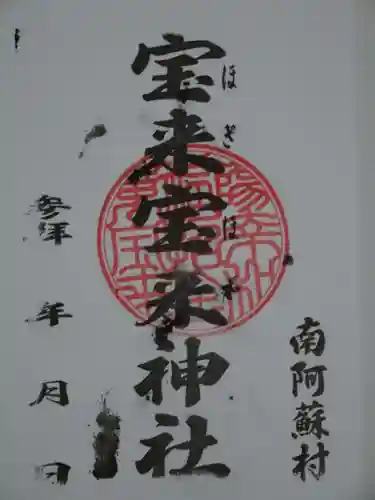 南阿蘇村
宝来宝来神社
ほぎほぎ
参拝
年月日